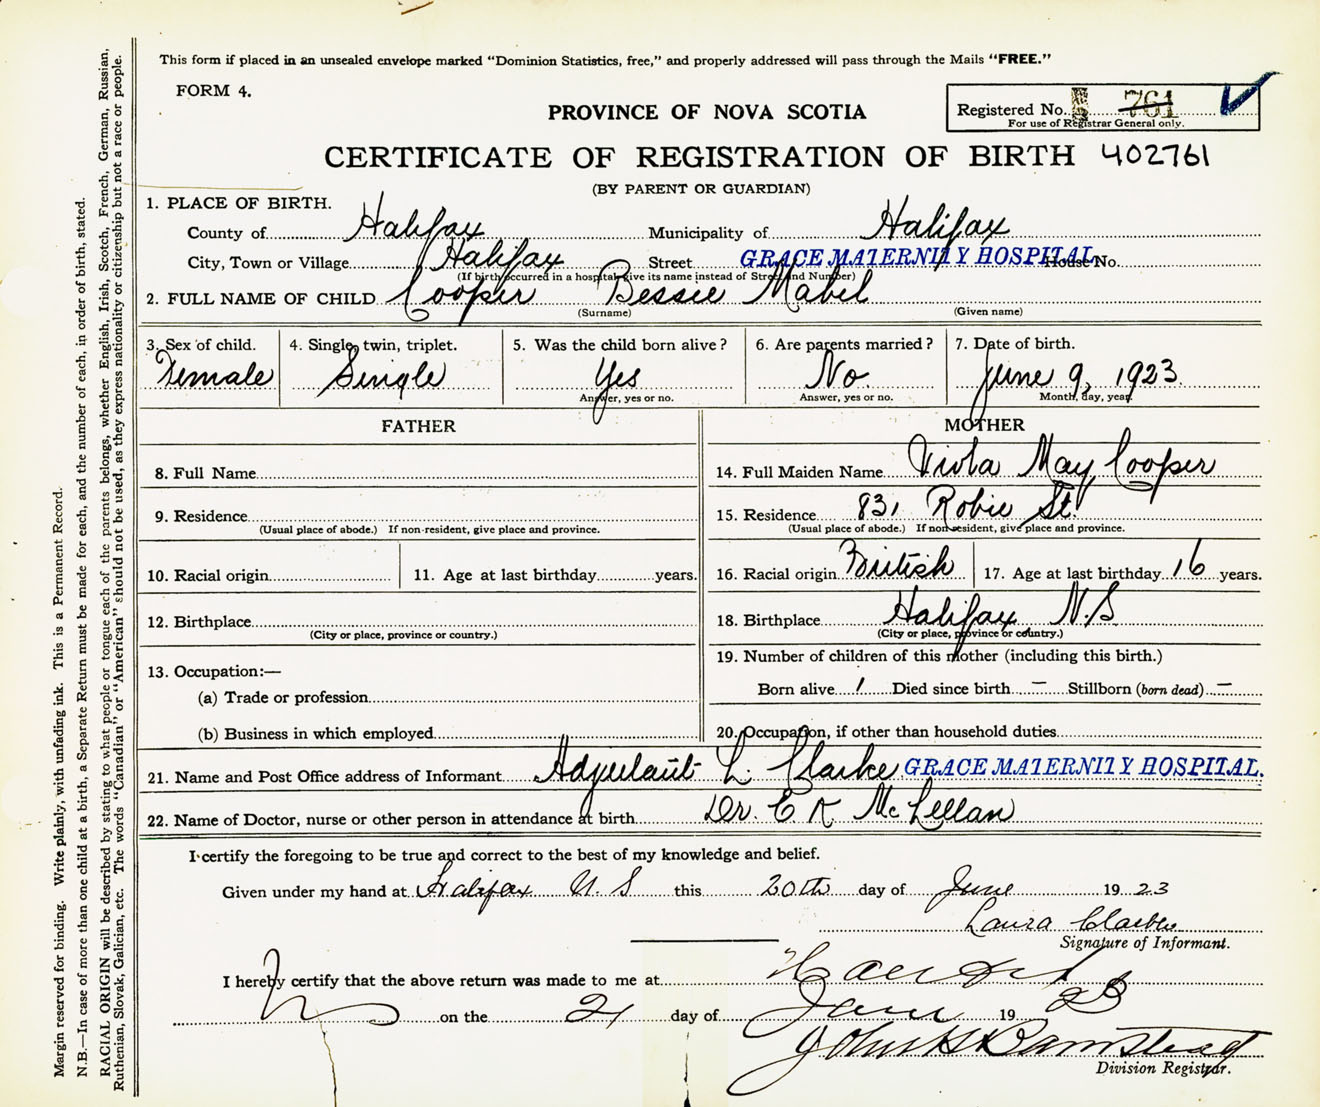 This form if placed in an unsealed envelope marked "Dominion Statistics, free," and properly addressed will pass through the Mails "FREE."
FORM 4.
PROVINCE OF NOVA SCOTIA
Registered No. 761
For use of Registrar General only.
CERTIFICATE OF REGISTRATION OF BIRTH 402761
(BY PARENT OR GUARDIAN)
1. PLACE OF BIRTH.
County of Halifax Municipality of Halifax
City, Town or Village Halifax Street GRACE MATERNITY HOSPITAL House No.
(If birth occurred in a hospital give its name instead of Street and Number)
2. FULL NAME OF CHILD Cooper Bessie Mabel
(Surname) (Given name)
3. Sex of child. Female
4. Single, twin, triplet. Single
5. Was the child born alive? Yes
Answer, yes or no.
6. Are parents married? No.
Answer, yes or no.
7. Date of birth. June 9, 1923.
Month, day, year.
FATHER
8. Full Name
9. Residence
(Usual place of abode.) If non-resident, give place and province.
10. Racial origin 11. Age at last birthday years.
12. Birthplace
(City or place, province or country.)
13. Occupation:—
(a) Trade or profession
(b) Business in which employed
MOTHER
14. Full Maiden Name Viola May Cooper
15. Residence 831 Robie St.
(Usual place of abode.) If non-resident, give place and province.
16. Racial origin British 17. Age at last birthday 16 years.
18. Birthplace Halifax N.S
(City or place, province or country.)
19. Number of children of this mother (including this birth.)
Born alive 1 Died since birth — Stillborn (born dead) —
20. Occupation, if other than household duties
21. Name and Post Office address of Informant Adjutant L. Clarke GRACE MATERNITY HOSPITAL.
22. Name of Doctor, nurse or other person in attendance at birth Dr. E K McLellan
I certify the foregoing to be true and correct to the best of my knowledge and belief.
Given under my hand at Halifax N. S this 20th day of June 1923
Laura Clarke
Signature of Informant.
I hereby certify that the above return was made to me at
on the 21 day of June 1923
John H Barnstead
Division Registrar.
Margin reserved for binding. Write plainly, with unfading ink. This is a Permanent Record.
N.B.—In case of more than one child at a birth, a Separate Return must be made for each, and the number of each, in order of birth, stated.
RACIAL ORIGIN will be described by stating to what people or tongue each of the parents belongs, whether English, Irish, Scotch, French, German, Russian,
Ruthenian, Slovak, Galician, etc. The words "Canadian" or "American" should not be used, as they express nationality or citizenship but not a race or people.